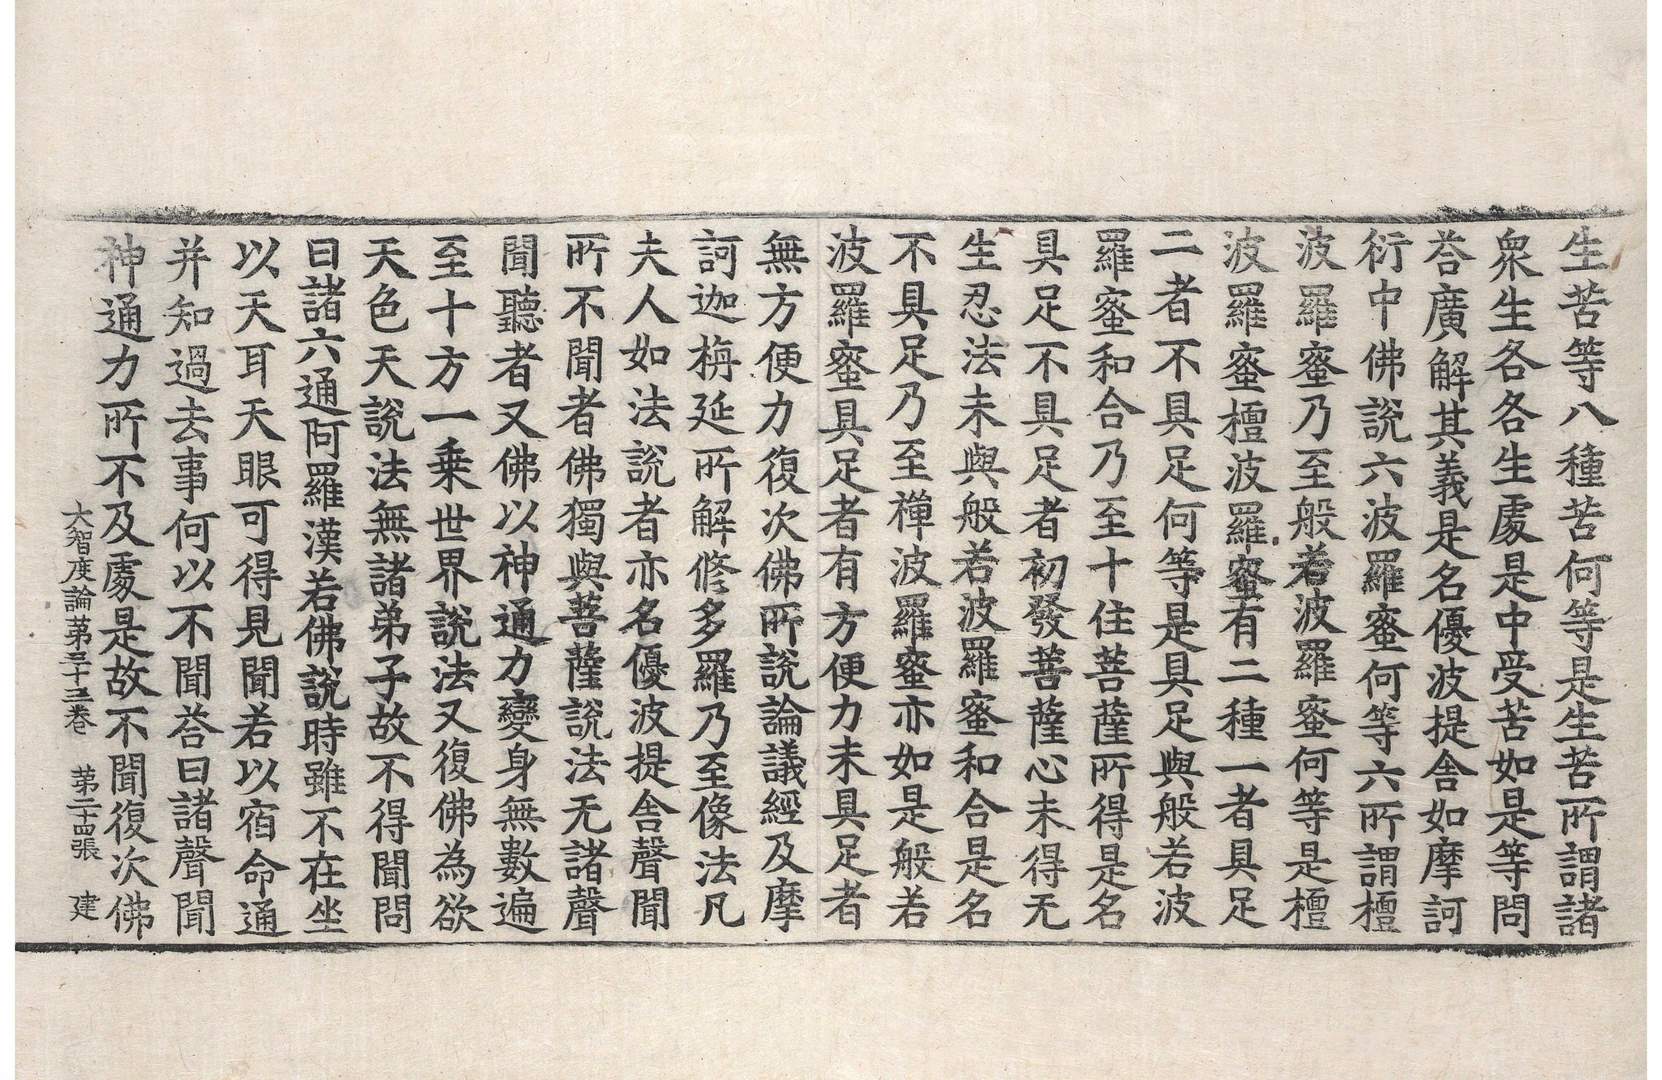 生苦等八種苦何等是生苦所謂諸
衆生各各生處是中受苦如是等問
荅廣解其義是名優波提舍如摩訶
衍中佛說六波羅蜜何等六所謂檀
波羅蜜乃至般若波羅蜜何等是檀
波羅蜜檀波羅蜜有二種一者具足
二者不具足何等是具足與般若波
羅蜜和合乃至十住菩薩所得是名
具足不具足者初發菩薩心未得无
生忍法未與般若波羅蜜和合是名
不具足乃至禪波羅蜜亦如是般若
波羅蜜具足者有方便力未具足者
無方便力復次佛所說論議經及摩
訶迦栴延所解修多羅乃至像法凡
夫人如法說者亦名優波提舍聲聞
所不聞者佛獨與菩薩說法无諸聲
聞聽者又佛以神通力變身無數遍
至十方一乘世界說法又復佛為欲
天色天說法無諸弟子故不得聞問
曰諸六通阿羅漢若佛說時雖不在坐
以天耳天眼可得見聞若以宿命通
并知過去事何以不聞荅曰諸聲聞
神通力所不及處是故不聞復次佛
大智度論第三十三卷 第二十四張 建